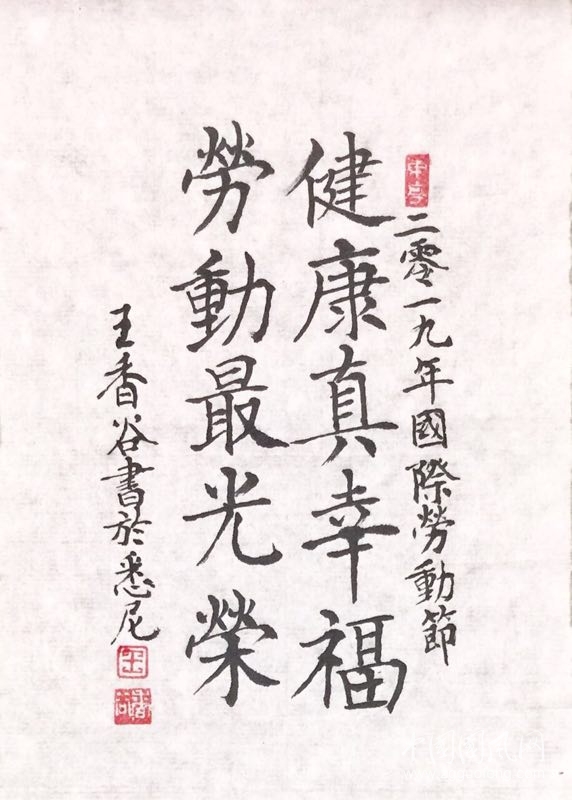 二零一九年國際勞動節
健康真幸福
勞動最光榮
王香谷書於悉尼